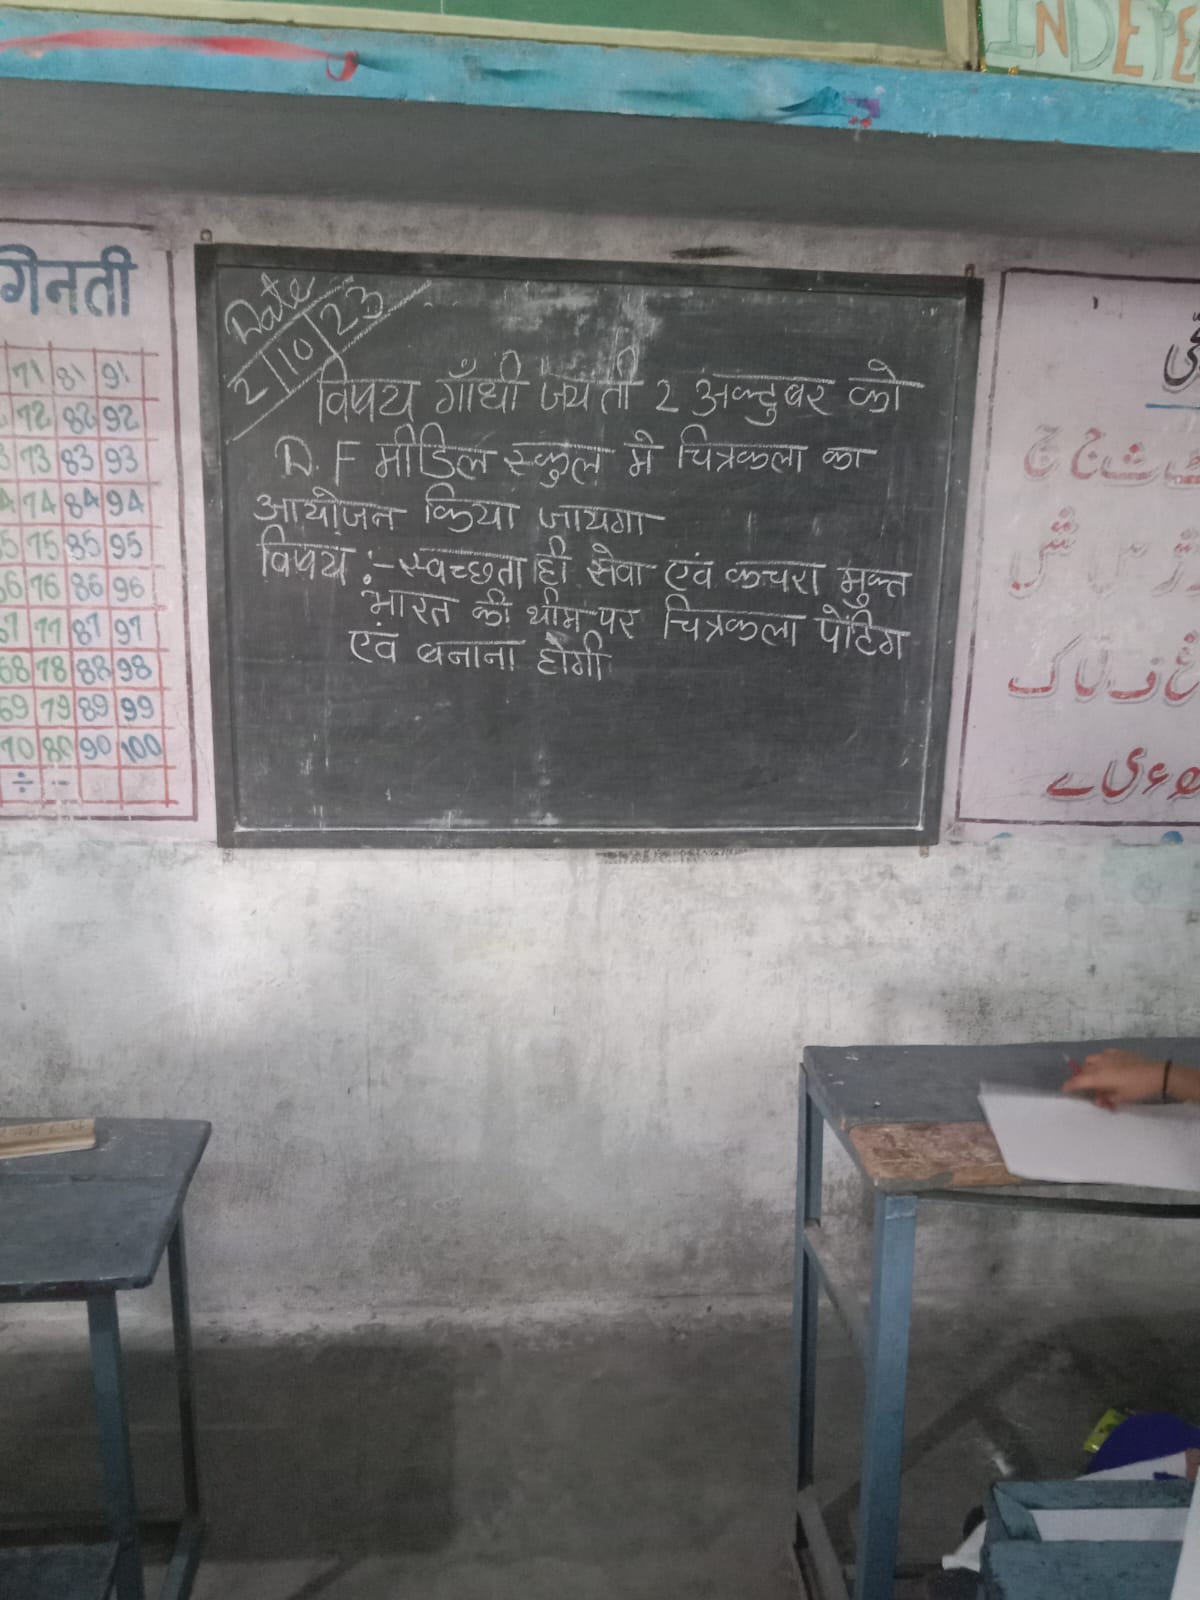 INDEPE
Date
2/10/23
विषय गाँधी जयती 2 अक्टुबर को
D.F मीडिल स्कुल मे चित्रकला का
आयोजन किया जायगा
विषय :- स्वच्छता ही सेवा एवं कचरा मुक्त
भारत की थीम पर चित्रकला पेंटिग
एवं बनाना होगी
गिनती
71 81 91
72 82 92
73 83 93
74 84 94
65 75 85 95
66 76 86 96
67 77 87 97
68 78 88 98
69 79 89 99
70 80 90 100
÷ -
ث ج چ
ش
ف ق ک
ھ ء ی ے